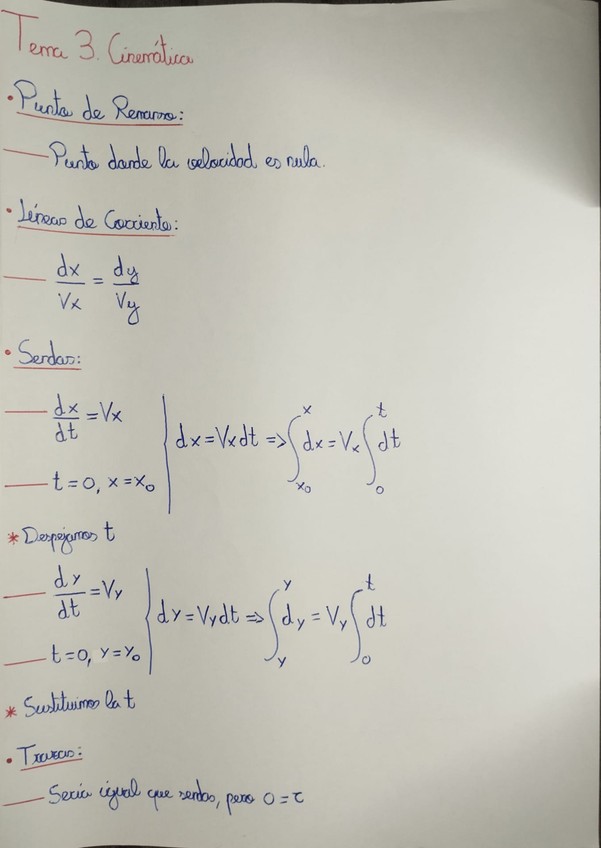 Tema 3. Cinemática
• Punto de Remanso:
— Punto donde la velocidad es nula.
• Líneas de Corriente:
— dx/Vx = dy/Vy
• Sendas:
— dx/dt = Vx
— t = 0, x = x₀
dx = Vx dt => ∫_{x₀}^{x} dx = Vx ∫_{0}^{t} dt
* Despejamos t
— dy/dt = Vy
— t = 0, y = y₀
dy = Vy dt => ∫_{y}^{y} dy = Vy ∫_{0}^{t} dt
* Sustituimos la t
• Trazas:
— Seria igual que sendas, pero 0 = τ